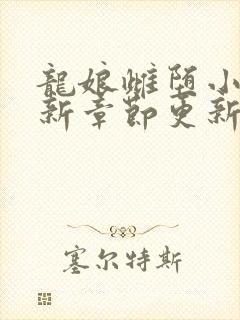 龍娘雌堕小
新章節更新
塞尔特斯